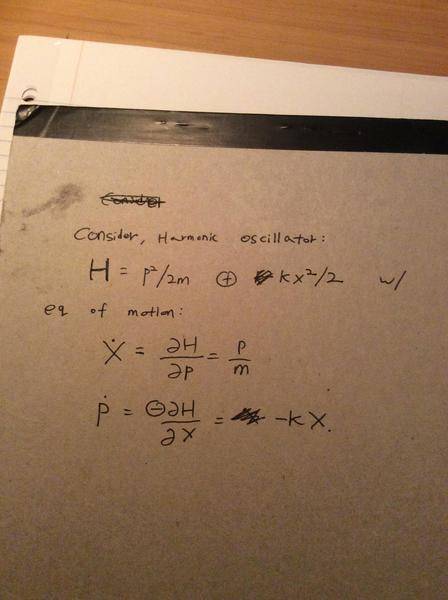 Consider, Harmonic oscillator:
H = p²/2m ⊕ kx²/2 w/
eq of motion:
Ẋ = ∂H/∂p = p/m
ṗ = ⊖∂H/∂X = -kX.